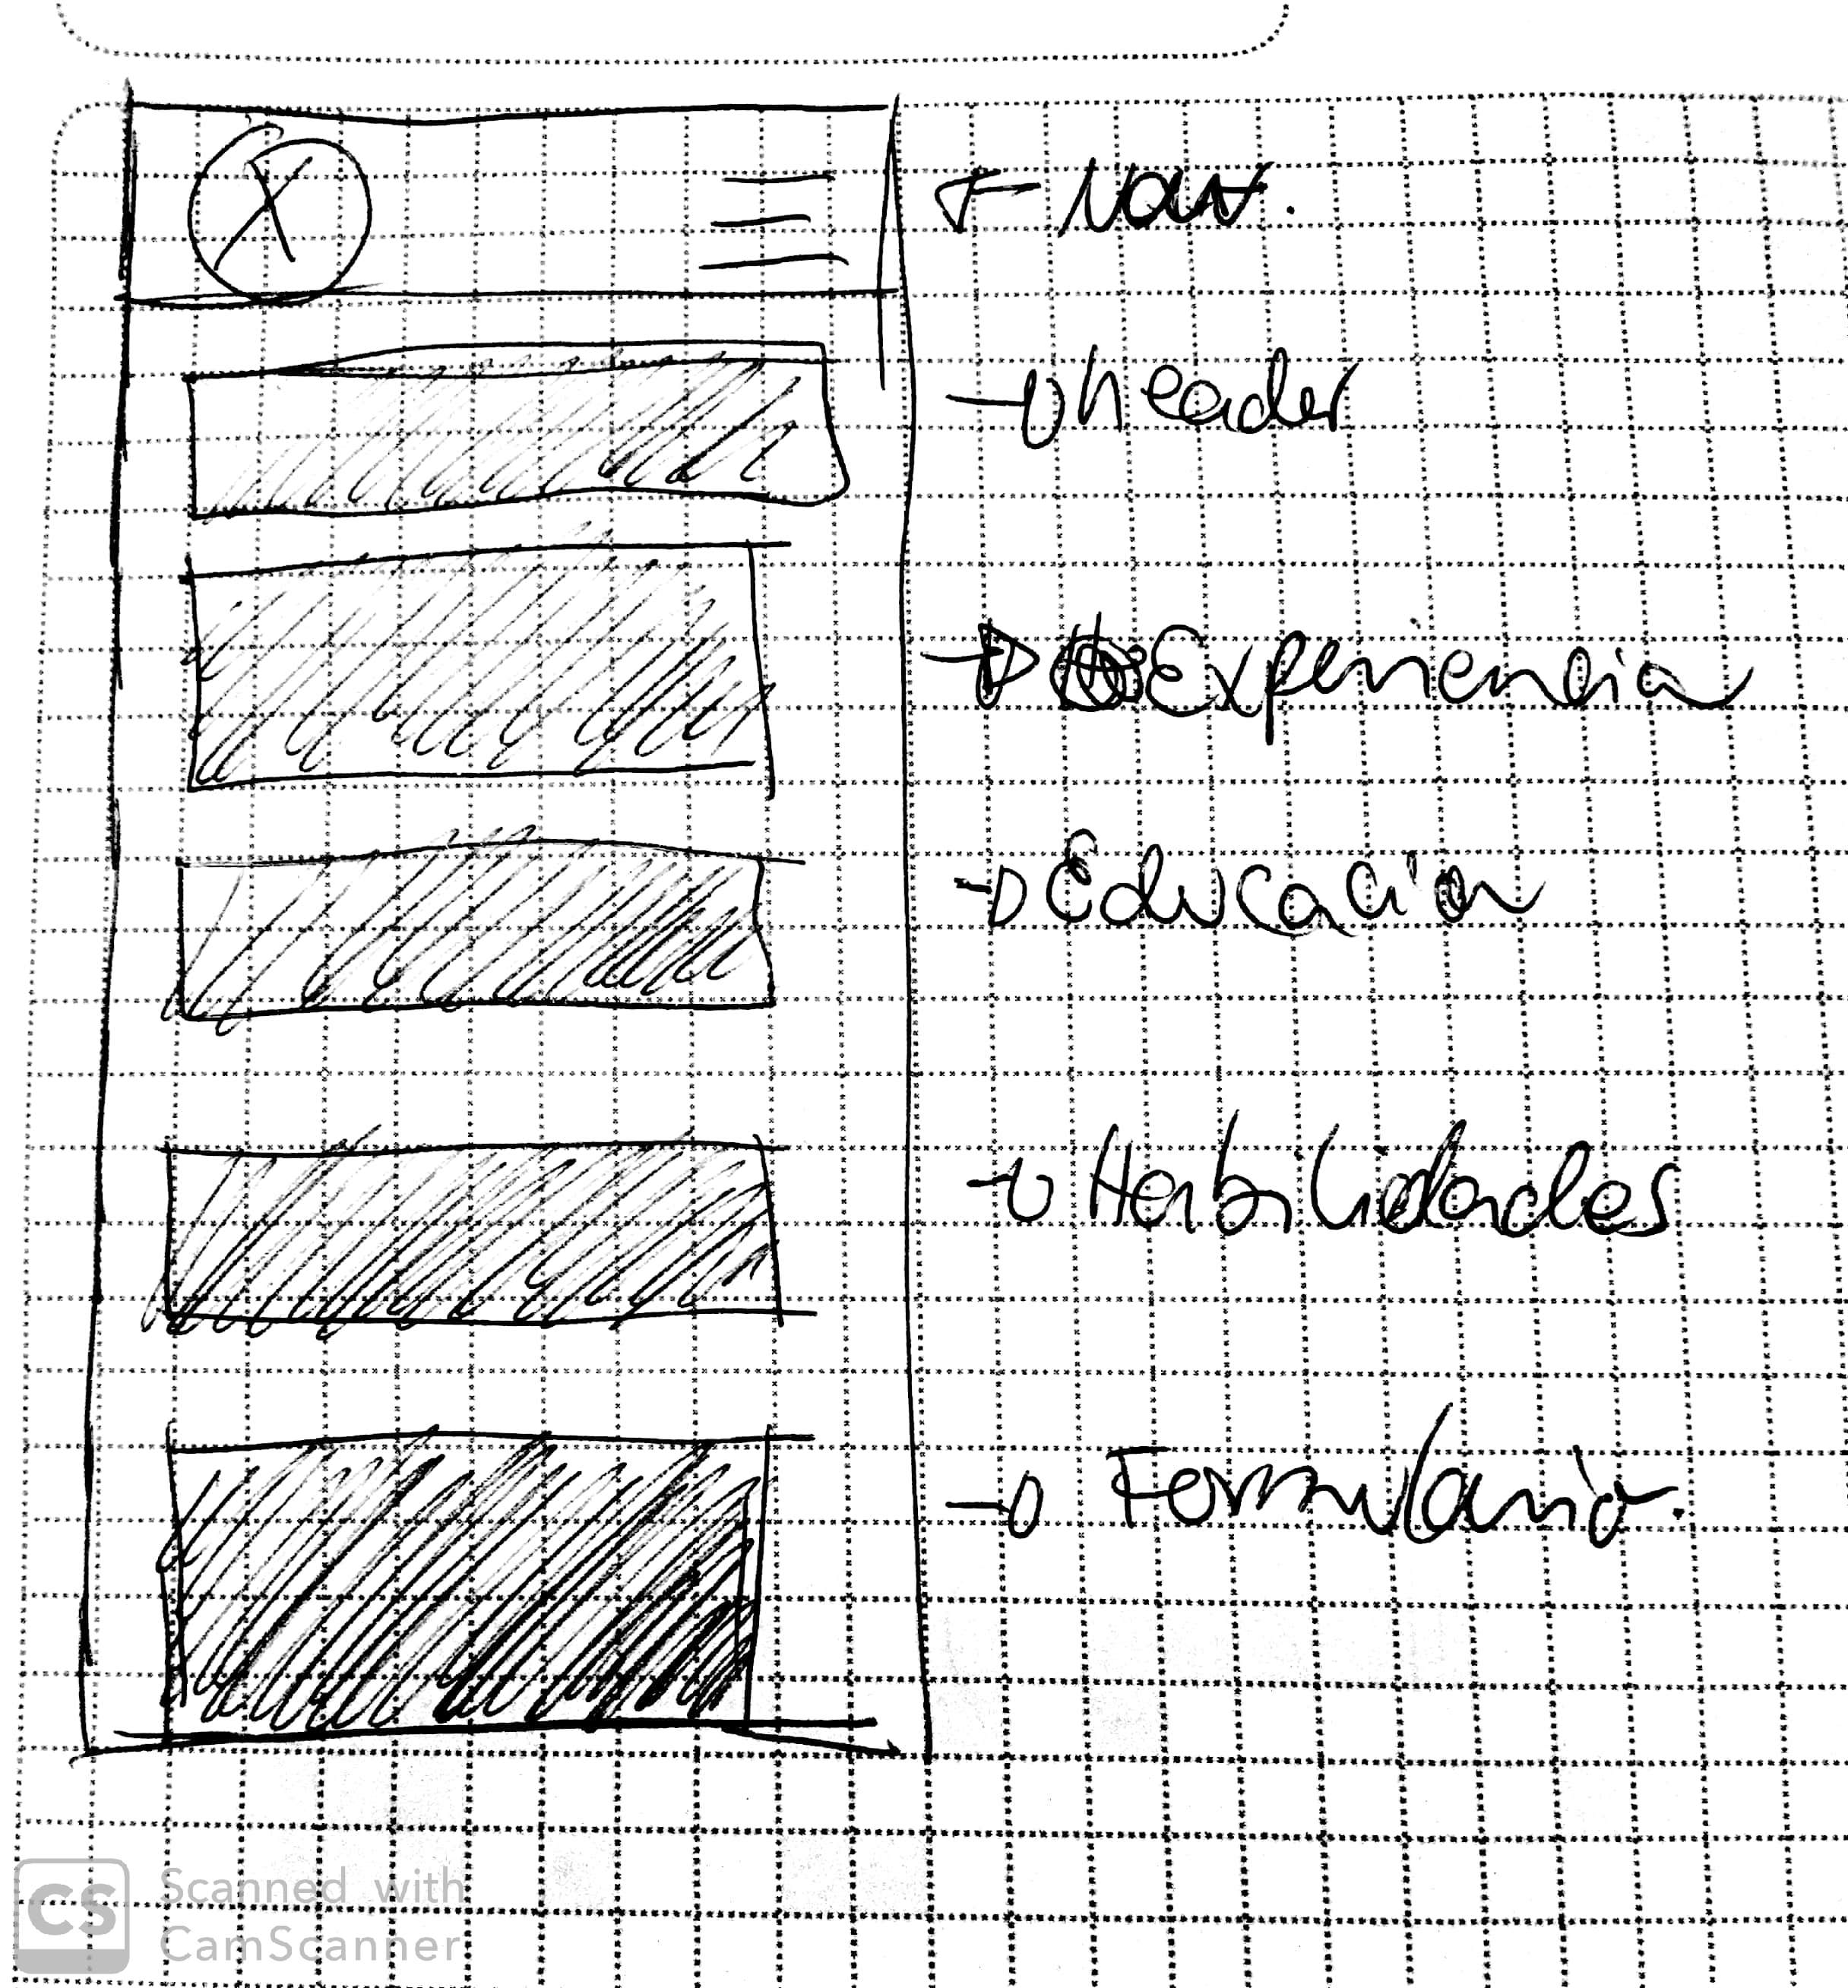 X
Nav.
header
Experiencia
Educación
Habilidades
Formulario.
CS
Scanned with
CamScanner